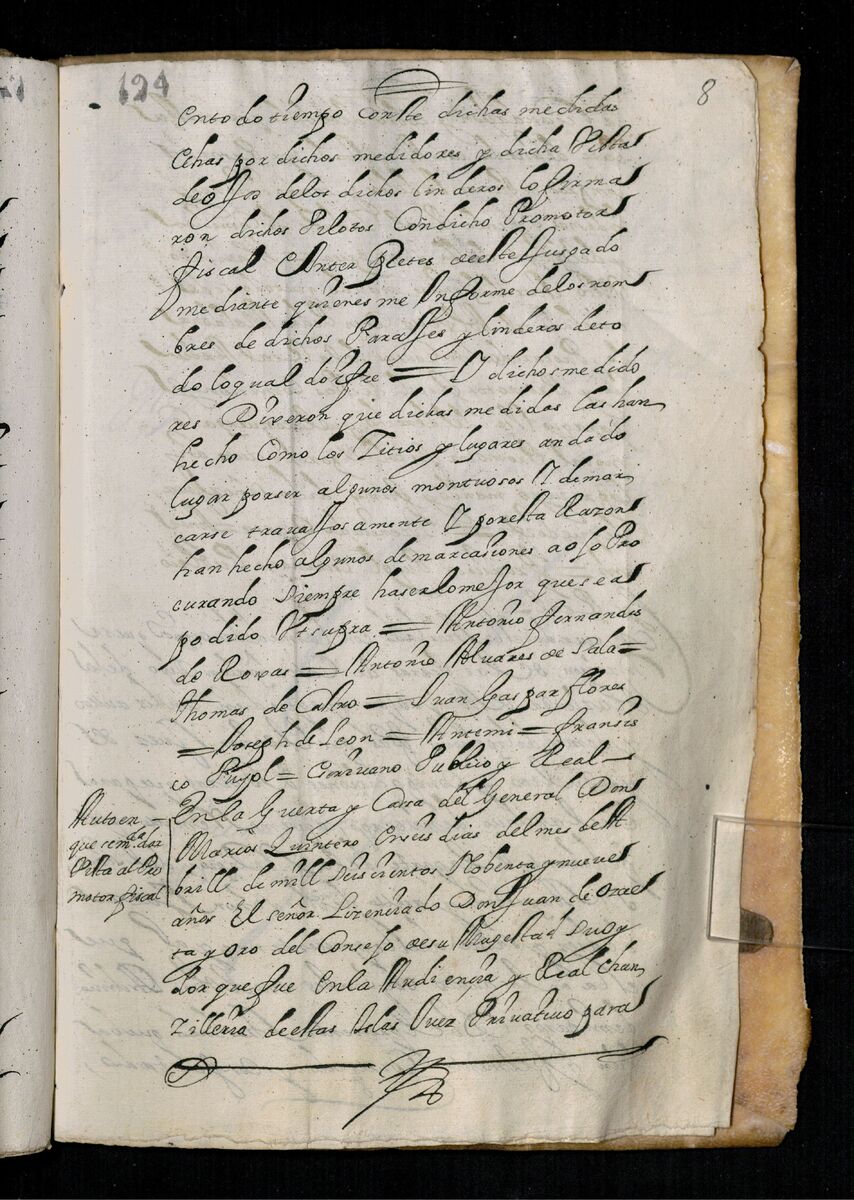 124
8
entodo tiempo conste dichas medidas
echas por dichos medidores y dicha Vista
de ojos delos dichos linderos lo firma
ron dichos Pilotos Condicho Promotor
fiscal e Ynter Pretes deeste Jusgado
mediante quienes me Ynforme delos nom
bres de dichos Parajes y linderos deto
do loqual doi fee = Y dichos medido
res Dixeron que dichas medidas las han
hecho Como los Zitios y lugares an dado
lugar porser algunos montuosos Y demar
carse travajosamente Y poresta Razon
han hecho algunos demarcasiones a ojo Pro
curando Siempre haserlo mejor que sea
podido Vt supra = Antonio Fernandes
de Roxas = Antonio Alvares de Sala =
Thomas de Castro = Juan Gaspar flores
= Joseph de Leon = Antemi = Fransis
co Pujol = Escrivano Publico y Real
Enla Guerta y Cassa del General Don
Marcos Quintero en seis dias del mes de A
brill de mill Seiscientos Nobenta y nueve
años El señor Lizenciado Don Juan de Ozae
ta y oro del Consejo de su Magestad Su oy
dor que fue Enla Audiencia y Real chan
Zilleria de estas Islas Juez Privativo para
Auto en
que se m.da dar
Vista al Pro
motor fiscal